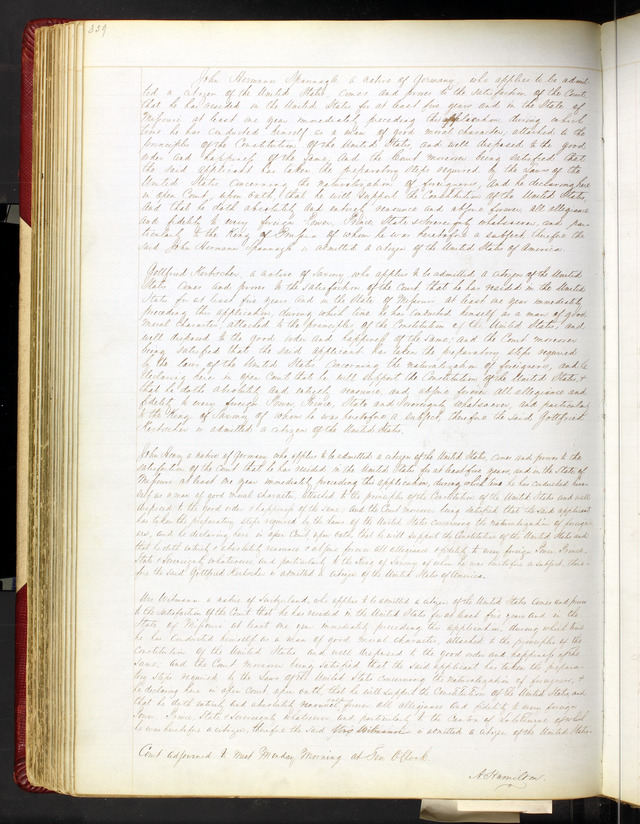 339
John Hermann Spannagh a native of Germany, who applies to be admit-
ted a citizen of the United States comes and proves to the satisfaction of the Court
that he has resided in the United States for at least five years and in the State of
Missouri at least one year immediately preceding this application during which
time he has conducted himself as a man of good moral character, attached to the
principles of the Constitution of the United States, and well disposed to the good
order and happiness of the same, and the Court moreover being satisfied that
the said applicant has taken the preparatory steps required by the Laws of the
United States concerning the naturalization of foreigners, and he declaring here
in open Court upon oath that he will support the Constitution of the United States,
and that he doth absolutely and entirely renounce and abjure forever all allegiance
and fidelity to every foreign Power, Prince State & Sovereign whatsoever and par-
ticularly to the King of Prussia of whom he was heretofore a subject, therefore the
said John Hermann Spannagh is admitted a citizen of the United States of America.
Gottfried, a native of Saxony who applies to be admitted a citizen of the United
States comes and proves to the satisfaction of the Court that he has resided in the United
States for at least five years and in the State of Missouri at least one year immediately
preceding this application, during which time he has conducted himself as a man of good
moral character, attached to the principles of the Constitution of the United States, and
well disposed to the good order and happiness of the same, and the Court moreover
being satisfied that the said applicant has taken the preparatory steps required
by the laws of the United States concerning the naturalization of foreigners, and he
declaring here in open Court that he will support the Constitution of the United States, &
that he doth absolutely and entirely renounce, and abjure forever all allegiance and
fidelity to every foreign Power, Prince, State and Sovereign whatsoever, and particularly
to the King of Saxony of whom he was heretofore a subject, therefore the said Gottfried
is admitted a citizen of the United States.
John a native of Germany who applies to be admitted a citizen of the United States, comes and proves to the
satisfaction of the Court that he has resided in the United States for at least five years, and in the State of
Missouri at least one year immediately preceding this application, during which time he has conducted him-
self as a man of good moral character, attached to the principles of the Constitution of the United States and well
disposed to the good order & happiness of the same, and the Court moreover being satisfied that the said applicant
has taken the preparatory steps required by the laws of the United States concerning the naturalization of foreign-
ers, and he declaring here in open Court upon oath, that he will support the Constitution of the United States and
that he doth entirely & absolutely renounce & abjure forever all allegiance & fidelity to every foreign Power, Prince,
State & Sovereign whatsoever and particularly to the King of Saxony of whom he was heretofore a subject, there-
fore the said Gottfried is admitted a citizen of the United States of America.
a native of Switzerland, who applies to be admitted a citizen of the United States comes and proves
to the satisfaction of the Court that he has resided in the United States for at least five years and in the
State of Missouri at least one year immediately preceding this application, during which time
he has conducted himself as a man of good moral character, attached to the principles of the
Constitution of the United States and well disposed to the good order and happiness of the
same, and the Court moreover being satisfied that the said applicant has taken the prepara-
tory steps required by the Laws of the United States concerning the naturalization of foreigners, &
he declaring here in open Court upon oath, that he will support the Constitution of the United States, and
that he doth entirely and absolutely renounce forever all allegiance and fidelity to every foreign
Power, Prince, State & Sovereign whatsoever and particularly to the Canton of of which
he was heretofore a citizen, therefore the said is admitted a citizen of the United States.
Court adjourned to meet Monday Morning at Ten O'Clock.
A. Hamilton.